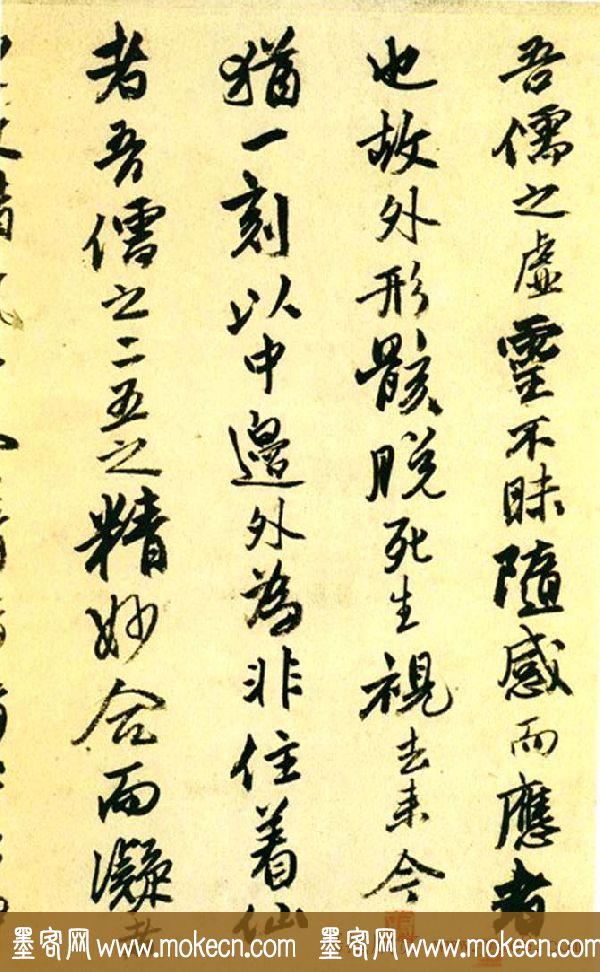 吾儒之虛靈不昧隨感而應者
也故外形骸脫死生視去來今
猶一刻以中邊外為非住着仙
者吾儒之二五之精妙合而凝者
墨客网 www.mokecn.com 墨客网 www.mokecn.com